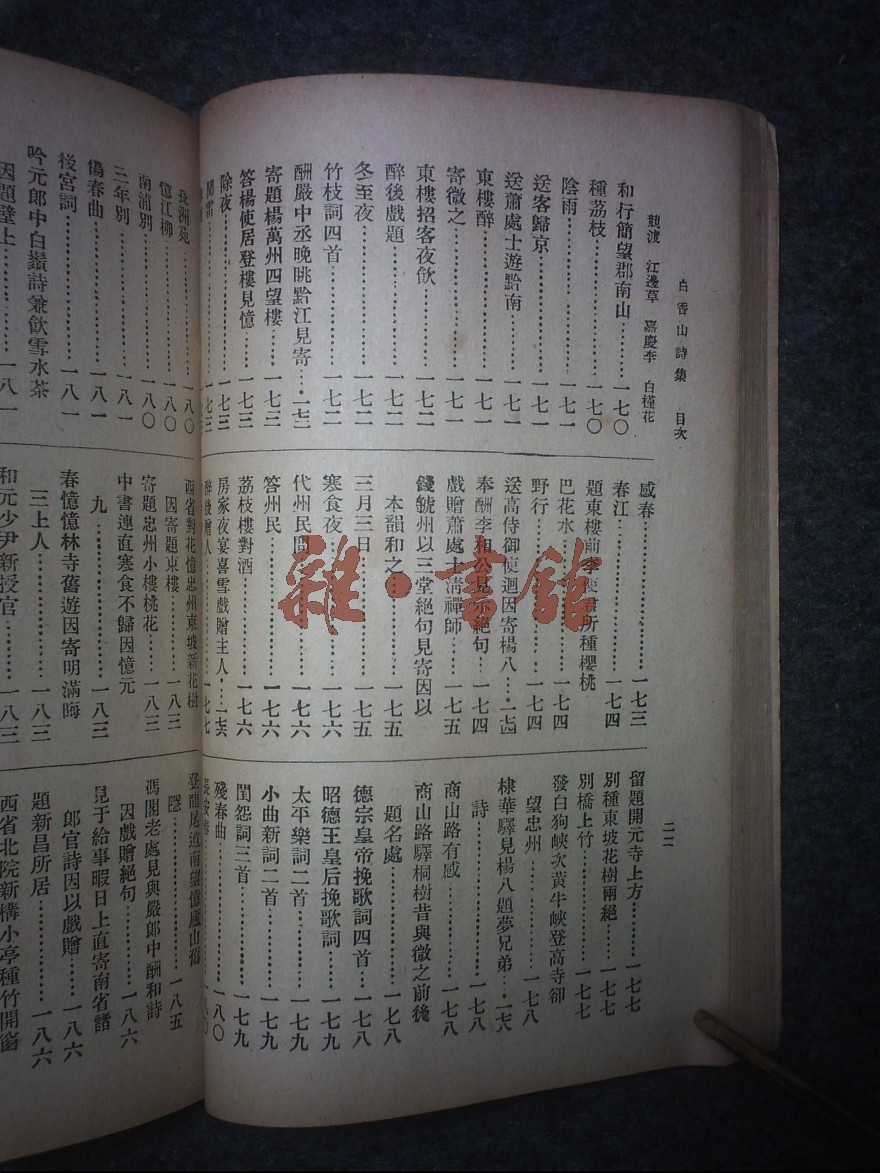 白香山詩集　目次
二二
競渡　江邊草　嘉慶李　白槿花
和行簡望郡南山………一七〇
種荔枝………一七〇
陰雨………一七一
送客歸京………一七一
送蕭處士遊黔南………一七一
東樓醉………一七一
寄微之………一七一
東樓招客夜飲………一七二
醉後戲題………一七二
冬至夜………一七二
竹枝詞四首………一七二
酬嚴中丞晚眺黔江見寄…一七二
寄題楊萬州四望樓………一七三
答楊使居登樓見憶………一七三
除夜………一七三
聞雷………一七三
感春………一七三
春江………一七四
題東樓前李使君所種櫻桃
巴花水………一七四
野行………一七四
送高侍御使迴因寄楊八…一七四
奉酬李相公見示絕句…一七四
戲贈蕭處士清禪師………一七五
錢虢州以三堂絕句見寄因以
本韻和之………一七五
三月三日………一七五
寒食夜………一七六
代州民問………一七六
答州民………一七六
荔枝樓對酒………一七六
房家夜宴喜雪戲贈主人…一七六
醉後贈人………一七七
留題開元寺上方………一七七
別種東坡花樹兩絕………一七七
別橋上竹………一七七
發白狗峽次黃牛峽登高寺卻
望忠州………一七八
棣華驛見楊八題夢兄弟…一七八
詩………一七八
商山路有感………一七八
商山路驛桐樹昔與微之前後
題名處………一七八
德宗皇帝挽歌詞四首…一七八
昭德王皇后挽歌詞………一七九
太平樂詞二首………一七九
小曲新詞二首………一七九
閨怨詞三首………一七九
殘春曲………一八〇
長安春………一八〇
長洲苑………一八〇
憶江柳………一八〇
南浦別………一八〇
三年別………一八一
傷春曲………一八一
後宮詞………一八一
吟元郎中白鬚詩兼飲雪水茶
因題壁上………一八一
西省對花憶忠州東坡新花樹
因寄題東樓………一八三
寄題忠州小樓桃花………一八三
中書連直寒食不歸因憶元
九………一八三
春憶憶林寺舊遊因寄明滿晦
三上人………一八三
和元少尹新授官………一八三
登龍尾道南望憶廬山舊
隱………一八五
馮閣老處見與嚴郎中酬和詩
因戲贈絕句………一八六
見于給事暇日上直寄南省諸
郎官詩因以戲贈………一八六
題新昌所居………一八六
西省北院新構小亭種竹開窗
雜·書館